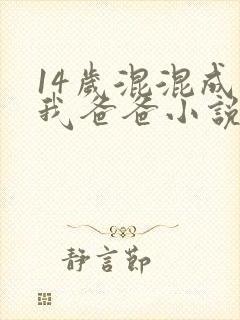 14歲混混成
我爸爸小說
靜言節